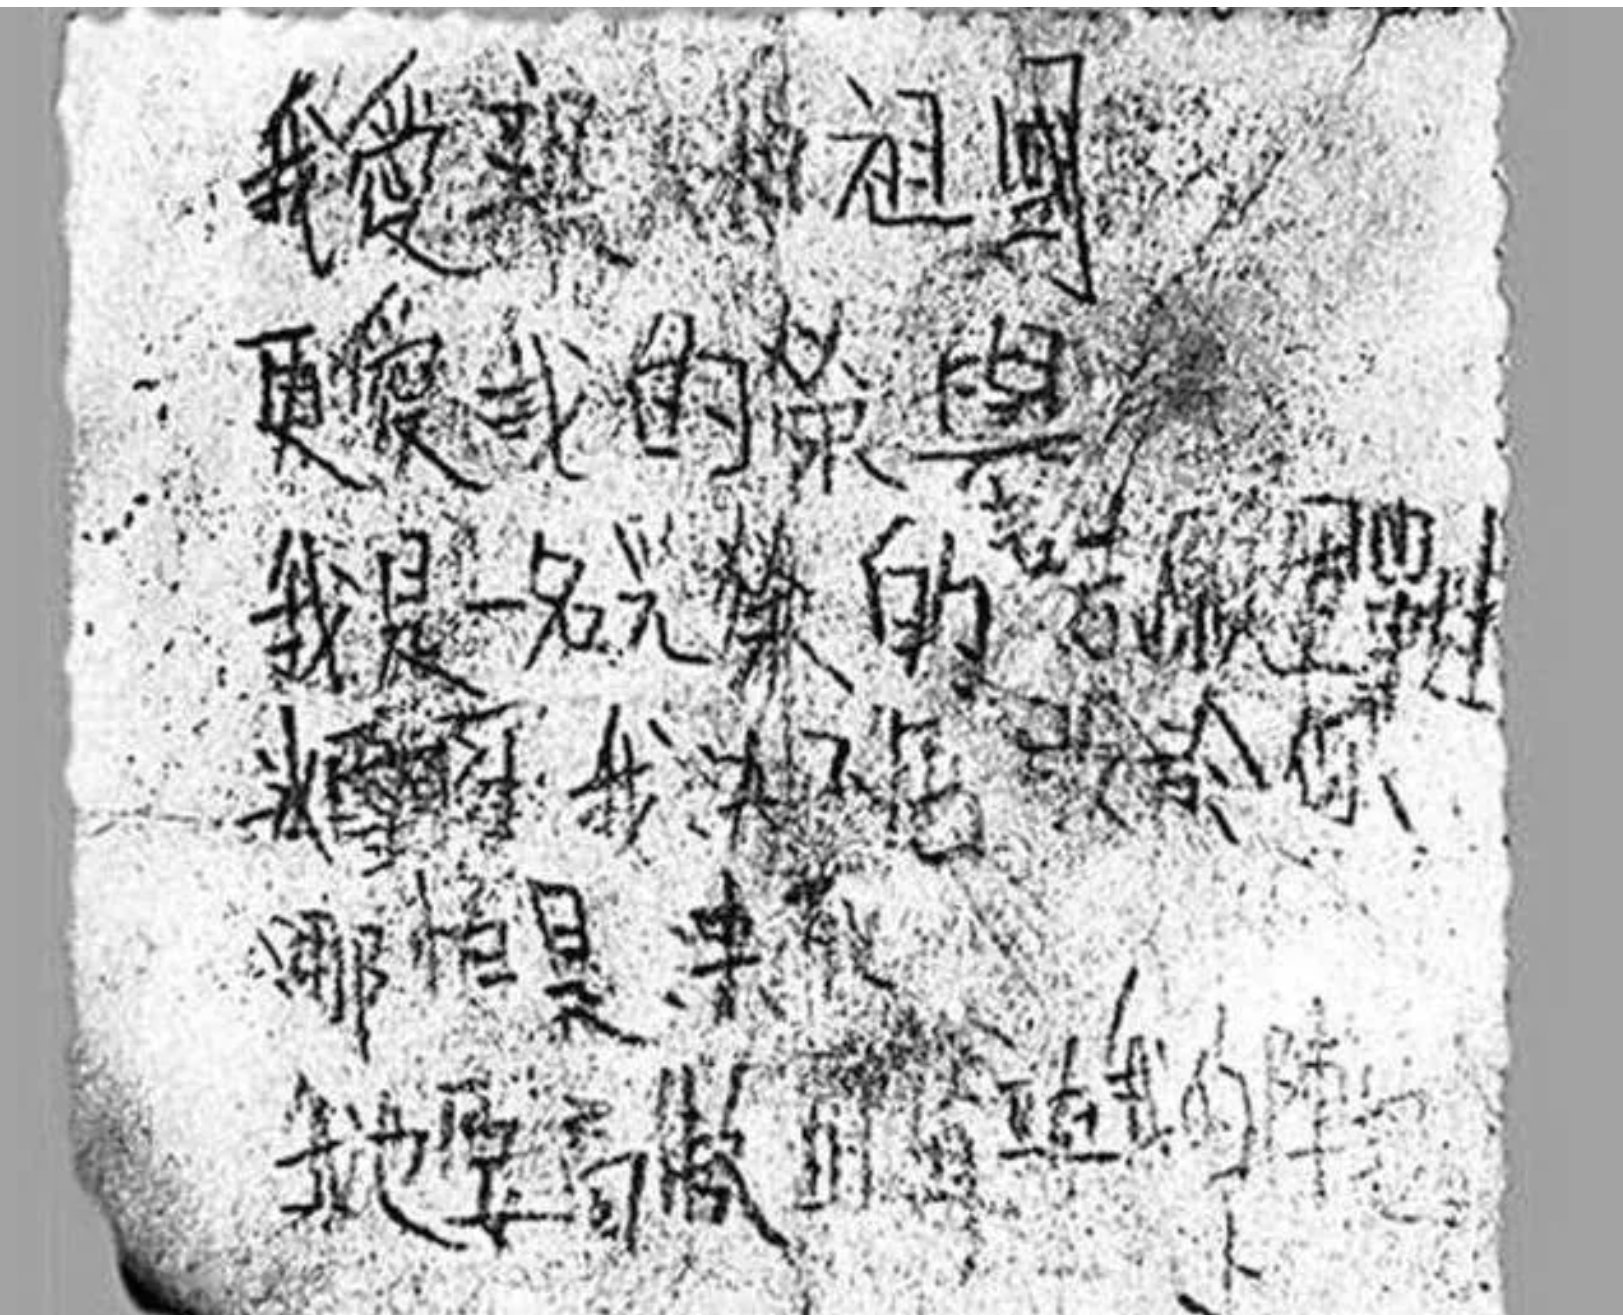 我愛親 祖國
更愛我的榮譽
我是一名光榮的志願軍戰士
冰雪啊我決不屈 你
哪怕是凍死
我也要高傲 我的陣地
上